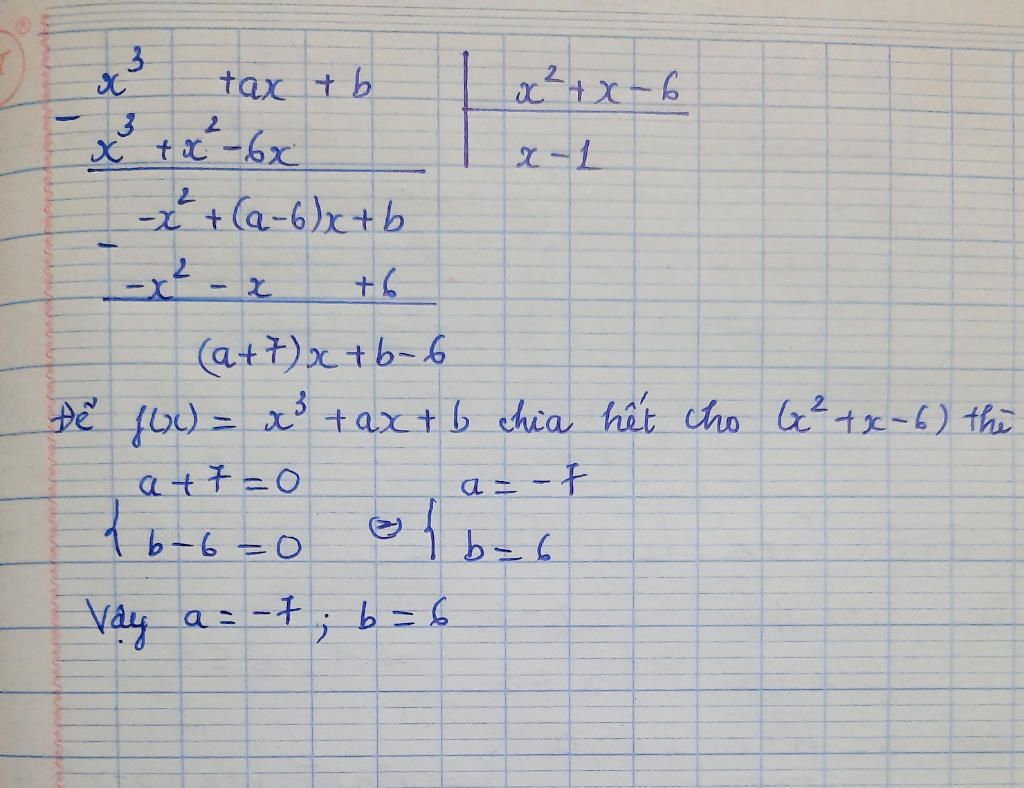 x³ +ax + b | x² + x - 6
- x³ + x² - 6x | x - 1
-x² + (a-6)x + b
- -x² - x + 6
(a+7)x + b - 6
Để f(x) = x³ + ax + b chia hết cho (x² + x - 6) thì
{ a + 7 = 0 ⇔ { a = -7
b - 6 = 0 b = 6
Vậy a = -7 ; b = 6